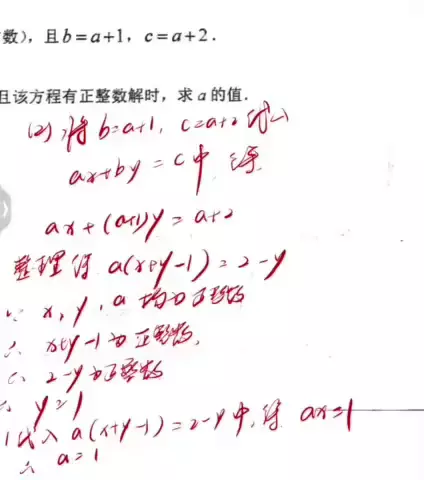 数），且b=a+1，c=a+2．
且该方程有正整数解时，求a的值．
(2)将b=a+1，c=a+2代入
ax+by=c中，得
ax+(a+1)y=a+2
整理得 a(x+y-1)=2-y
∵ x，y，a均为正整数
∴ x+y-1为正整数，
∴ 2-y为正整数
∴ y=1
代入a(x+y-1)=2-y中，得 ax=1
∴ a=1